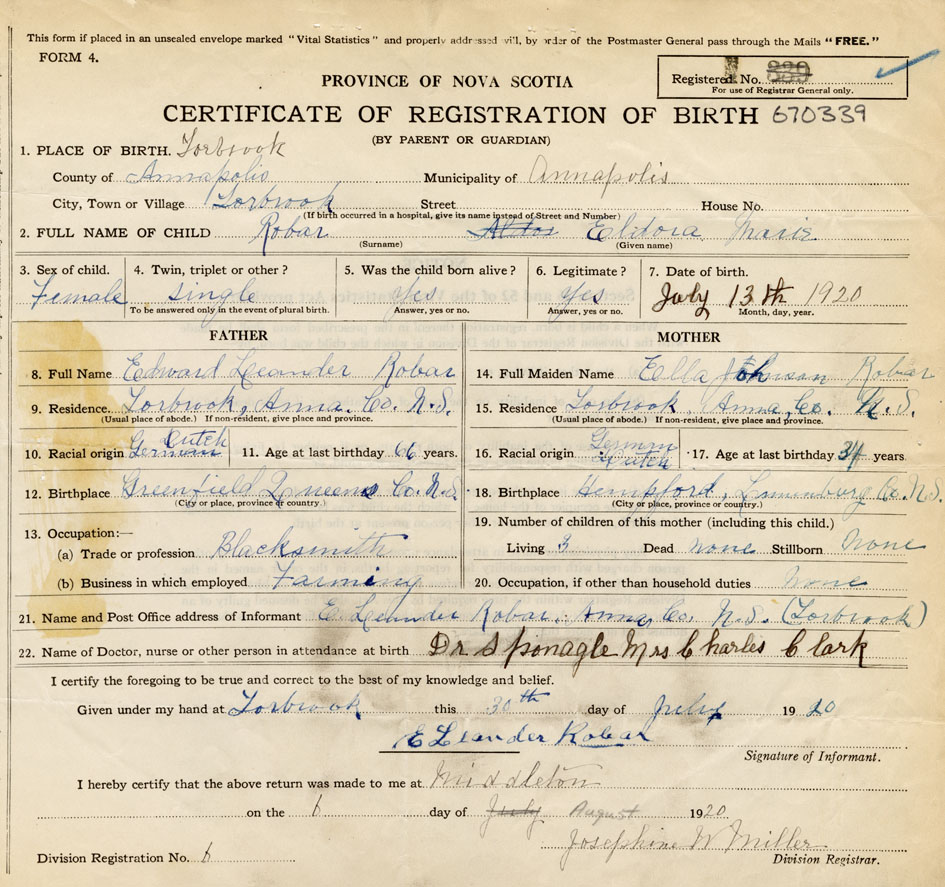 This form if placed in an unsealed envelope marked "Vital Statistics" and properly addressed will, by order of the Postmaster General pass through the Mails "FREE."
FORM 4.
PROVINCE OF NOVA SCOTIA
Registered No. 339
For use of Registrar General only.
CERTIFICATE OF REGISTRATION OF BIRTH 670339
(BY PARENT OR GUARDIAN)
1. PLACE OF BIRTH. Torbrook
County of Annapolis Municipality of Annapolis
City, Town or Village Torbrook Street House No.
(If birth occurred in a hospital, give its name instead of Street and Number)
2. FULL NAME OF CHILD Robar Eldora Marie
(Surname) (Given name)
3. Sex of child. 4. Twin, triplet or other? 5. Was the child born alive? 6. Legitimate? 7. Date of birth.
Female single Yes Yes July 13th 1920
To be answered only in the event of plural birth. Answer, yes or no. Answer, yes or no. Month, day, year.
FATHER MOTHER
8. Full Name Edward Leander Robar 14. Full Maiden Name Ella Johnson Robar
9. Residence. Torbrook, Anna. Co. N.S. 15. Residence Torbrook, Anna, Co. N.S.
(Usual place of abode.) If non-resident, give place and province. (Usual place of abode.) If non-resident, give place and province.
10. Racial origin German Dutch 11. Age at last birthday 66 years. 16. Racial origin German Dutch 17. Age at last birthday 34 years.
12. Birthplace Greenfield Queens Co. N.S. 18. Birthplace Hempford, Lunenburg Co. N.S.
(City or place, province or country.) (City or place, province or country.)
13. Occupation:— 19. Number of children of this mother (including this child.)
(a) Trade or profession Blacksmith Living 3 Dead none Stillborn None
(b) Business in which employed Farming 20. Occupation, if other than household duties None
21. Name and Post Office address of Informant E. Leander Robar, Anna Co. N.S. (Torbrook)
22. Name of Doctor, nurse or other person in attendance at birth Dr Sponagle Mrs Charles Clark
I certify the foregoing to be true and correct to the best of my knowledge and belief.
Given under my hand at Torbrook this 30th day of July 1920
E Leander Robar
Signature of Informant.
I hereby certify that the above return was made to me at Middleton
on the 6 day of July August 1920
Josephine W Miller
Division Registration No. 6 Division Registrar.